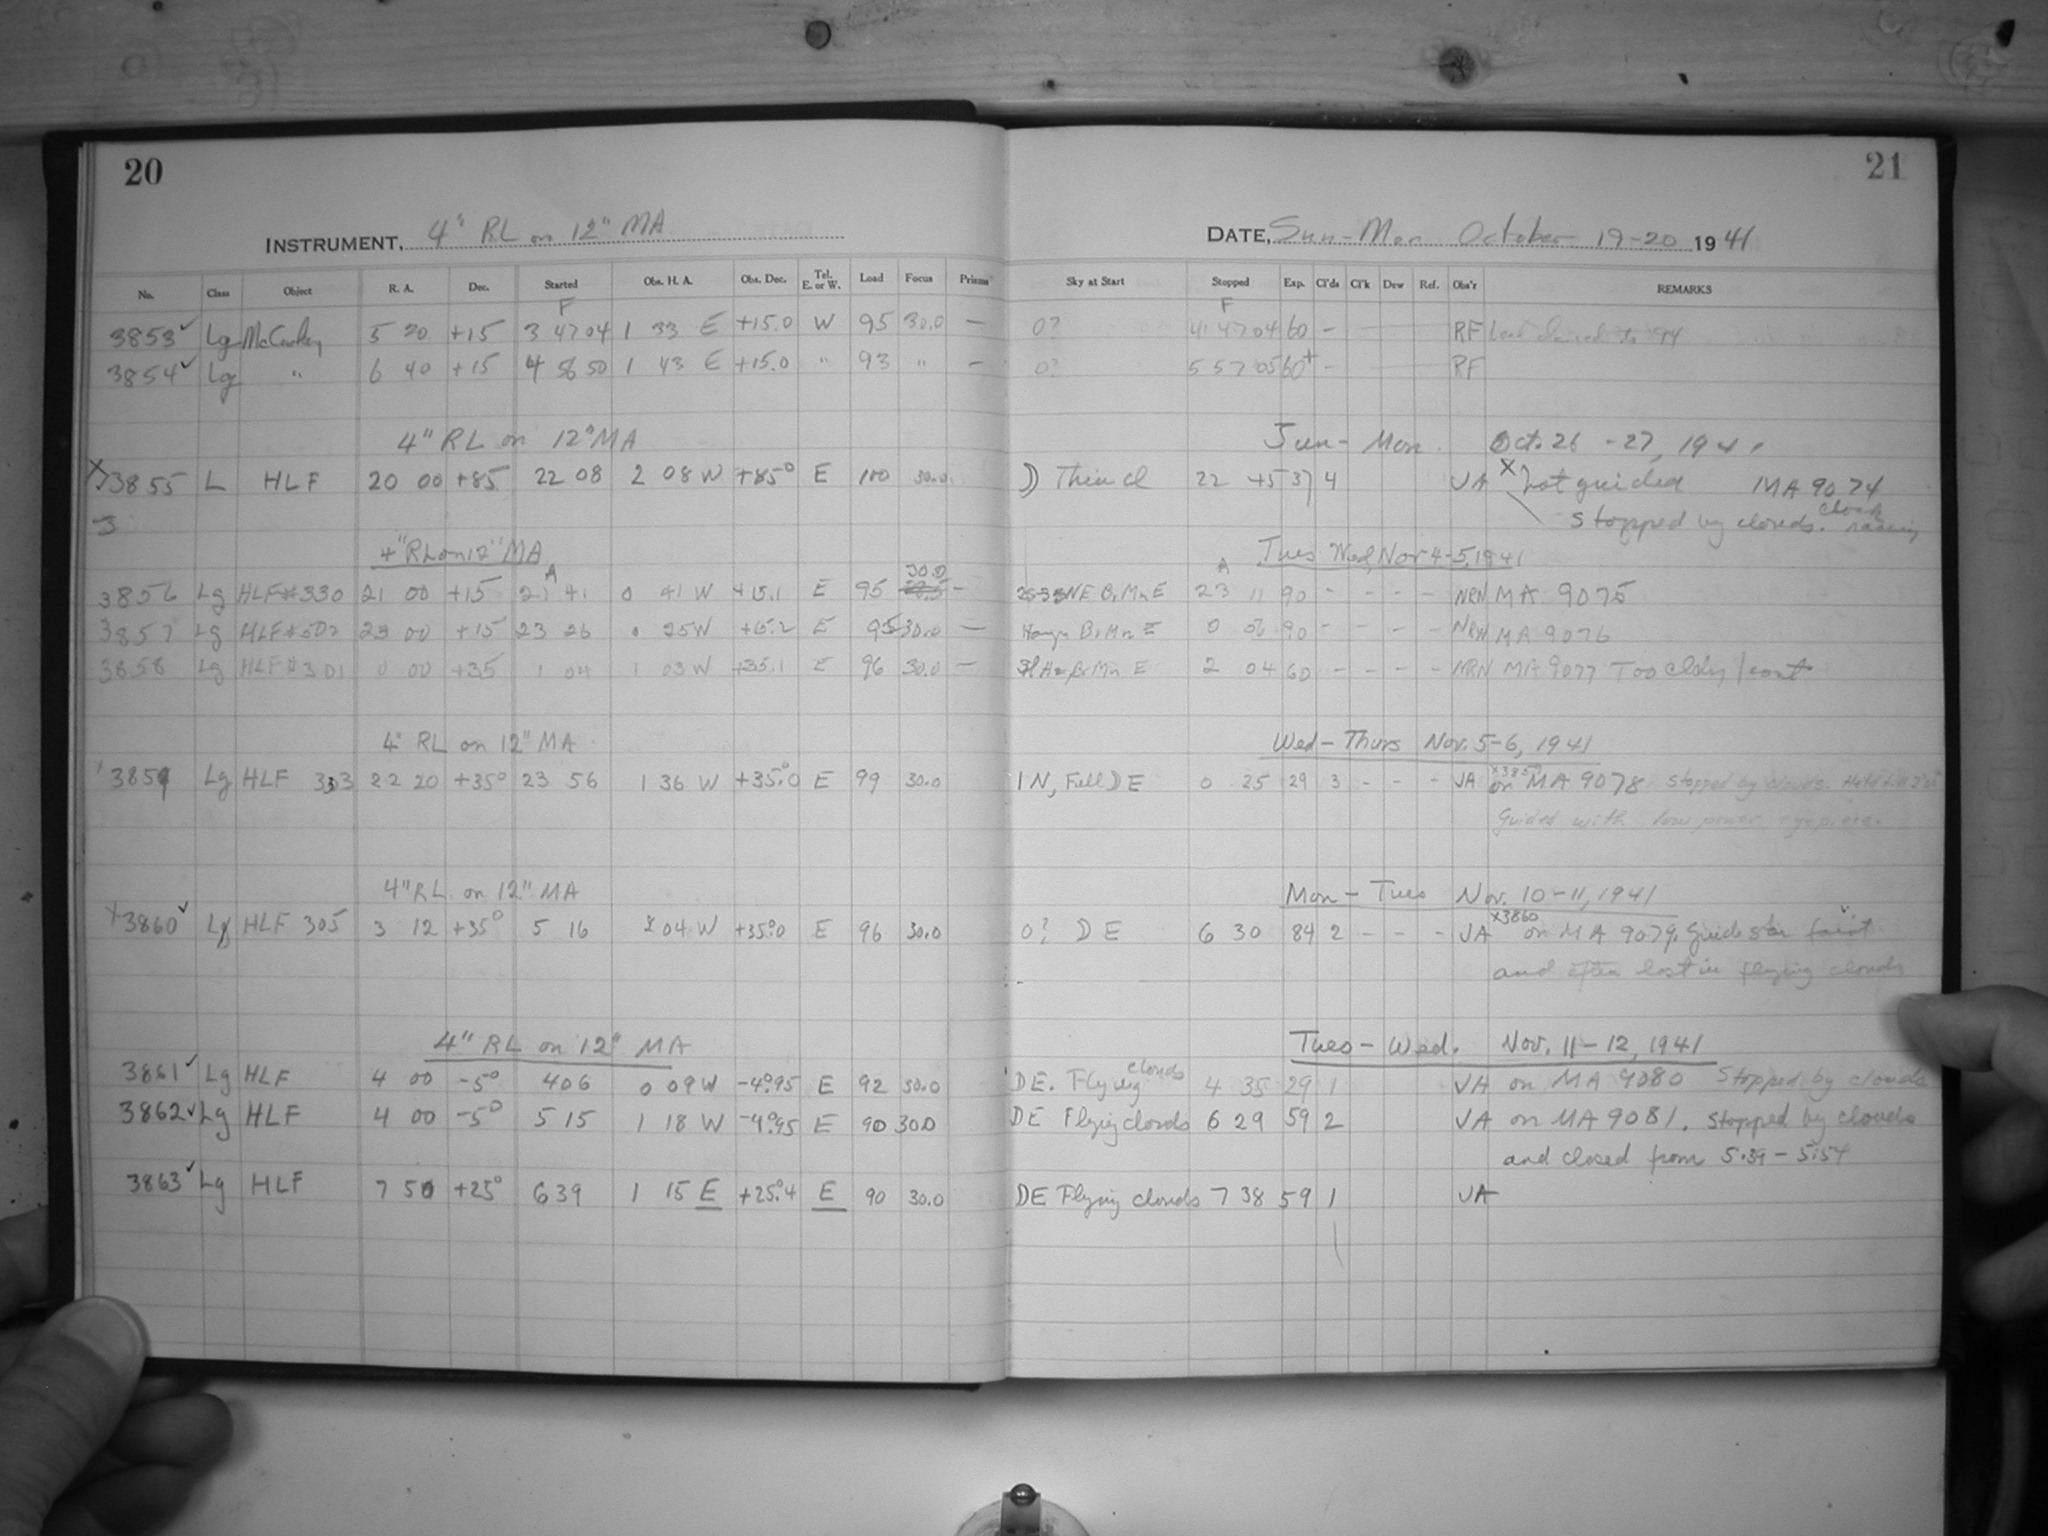 20
INSTRUMENT, 4" RL on 12" MA
No. Class Object R. A. Dec. Started Obs. H. A. Obs. Dec. Tel. E. or W. Load Focus Prisms
F
3853✓ Lg McCuskey 5 20 +15 3 47 04 1 33 E +15.0 W 95 30.0 —
3854✓ Lg " 6 40 +15 4 56 50 1 43 E +15.0 " 93 " —
4" RL on 12" MA
X 3855 L HLF 20 00 +85 22 08 2 08 W +85° E 100 30.0
4" RL on 12" MA
A 30.0
3856 Lg HLF#330 21 00 +15 21 41 0 41 W +15.1 E 95 —
3857 Lg 23 00 +15 23 26 0 25 W +15.2 E 95 30.0 —
3858 Lg HLF#301 0 00 +35 1 04 1 03 W +35.1 E 96 30.0 —
4" RL on 12" MA
3859 Lg HLF 303 22 20 +35° 23 56 1 36 W +35.°0 E 99 30.0
4" RL on 12" MA
X3860✓ Lg HLF 305 3 12 +35° 5 16 2 04 W +35.°0 E 96 30.0
4" RL on 12" MA
3861✓ Lg HLF 4 00 -5° 4 06 0 09 W -4.°95 E 92 30.0
3862✓ Lg HLF 4 00 -5° 5 15 1 18 W -4.°95 E 90 30.0
3863✓ Lg HLF 7 50 +25° 6 39 1 15 E +25.°4 E 90 30.0
21
DATE, Sun-Mon October 19-20 1941
Sky at Start Stopped Exp. Cl'ds Cl'k Dew Ref. Obs'r REMARKS
F
0? 4 47 04 60 - RF
0? 5 57 05 60+ - RF
Sun - Mon. Oct. 26 - 27, 1941
Thin cl 22 45 37 4 JA X Not guided MA 9074
stopped by clouds. clock
Tues Wed, Nov 4-5, 1941
A
NE Br Mn E 23 11 90 - - - - NRN MA 9075
Br Mn E 0 56 90 - - - - NRN MA 9076
Br Mn E 2 04 60 - - - - NRN MA 9077 Too cldy
Wed - Thurs Nov. 5-6, 1941
1 N, Full D E 0 25 29 3 - - - JA X3859 on MA 9078 Stopped by clouds.
Guided with low power eyepiece.
Mon - Tues Nov. 10-11, 1941
0? D E 6 30 84 2 - - - JA X3860 on MA 9079. Guide star faint
and often lost in flying clouds
Tues - Wed. Nov. 11-12, 1941
D E. Flying clouds 4 35 29 1 JA on MA 9080 Stopped by clouds
D E Flying clouds 6 29 59 2 JA on MA 9081. Stopped by clouds
and closed from 5:39 - 5:54
D E Flying clouds 7 38 59 1 JA